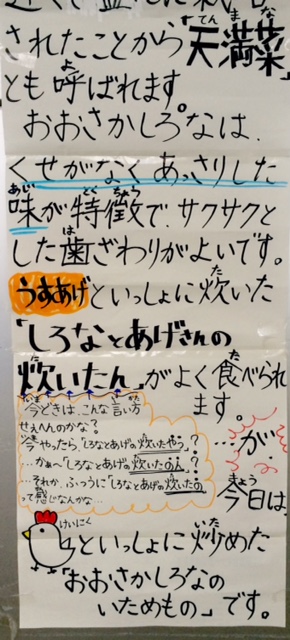 されたことから「天満菜」
とも呼ばれます。
おおさかしろなは、
くせがなくあっさりした
味が特徴で、サクサクと
した歯ざわりがよいです。
うすあげといっしょに炊いた
「しろなとあげさんの
炊いたん」がよく食べられ
ます。
今どきは、こんな言い方
せぇへんのかな？
今やったら、「しろなとあげの炊いたやつ」？
…かぁ〜「しろなとあげの炊いたのん」？
…それか、ふつうに「しろなとあげの炊いたの」
って感じなんかな…
…が、
今日は、
けいにく
といっしょに炒めた
「おおさかしろなの
いためもの」です。